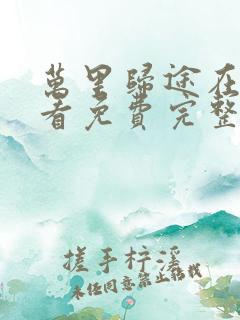 萬里歸途在
看免費完整
搓手梓溪
未经同意禁止转载